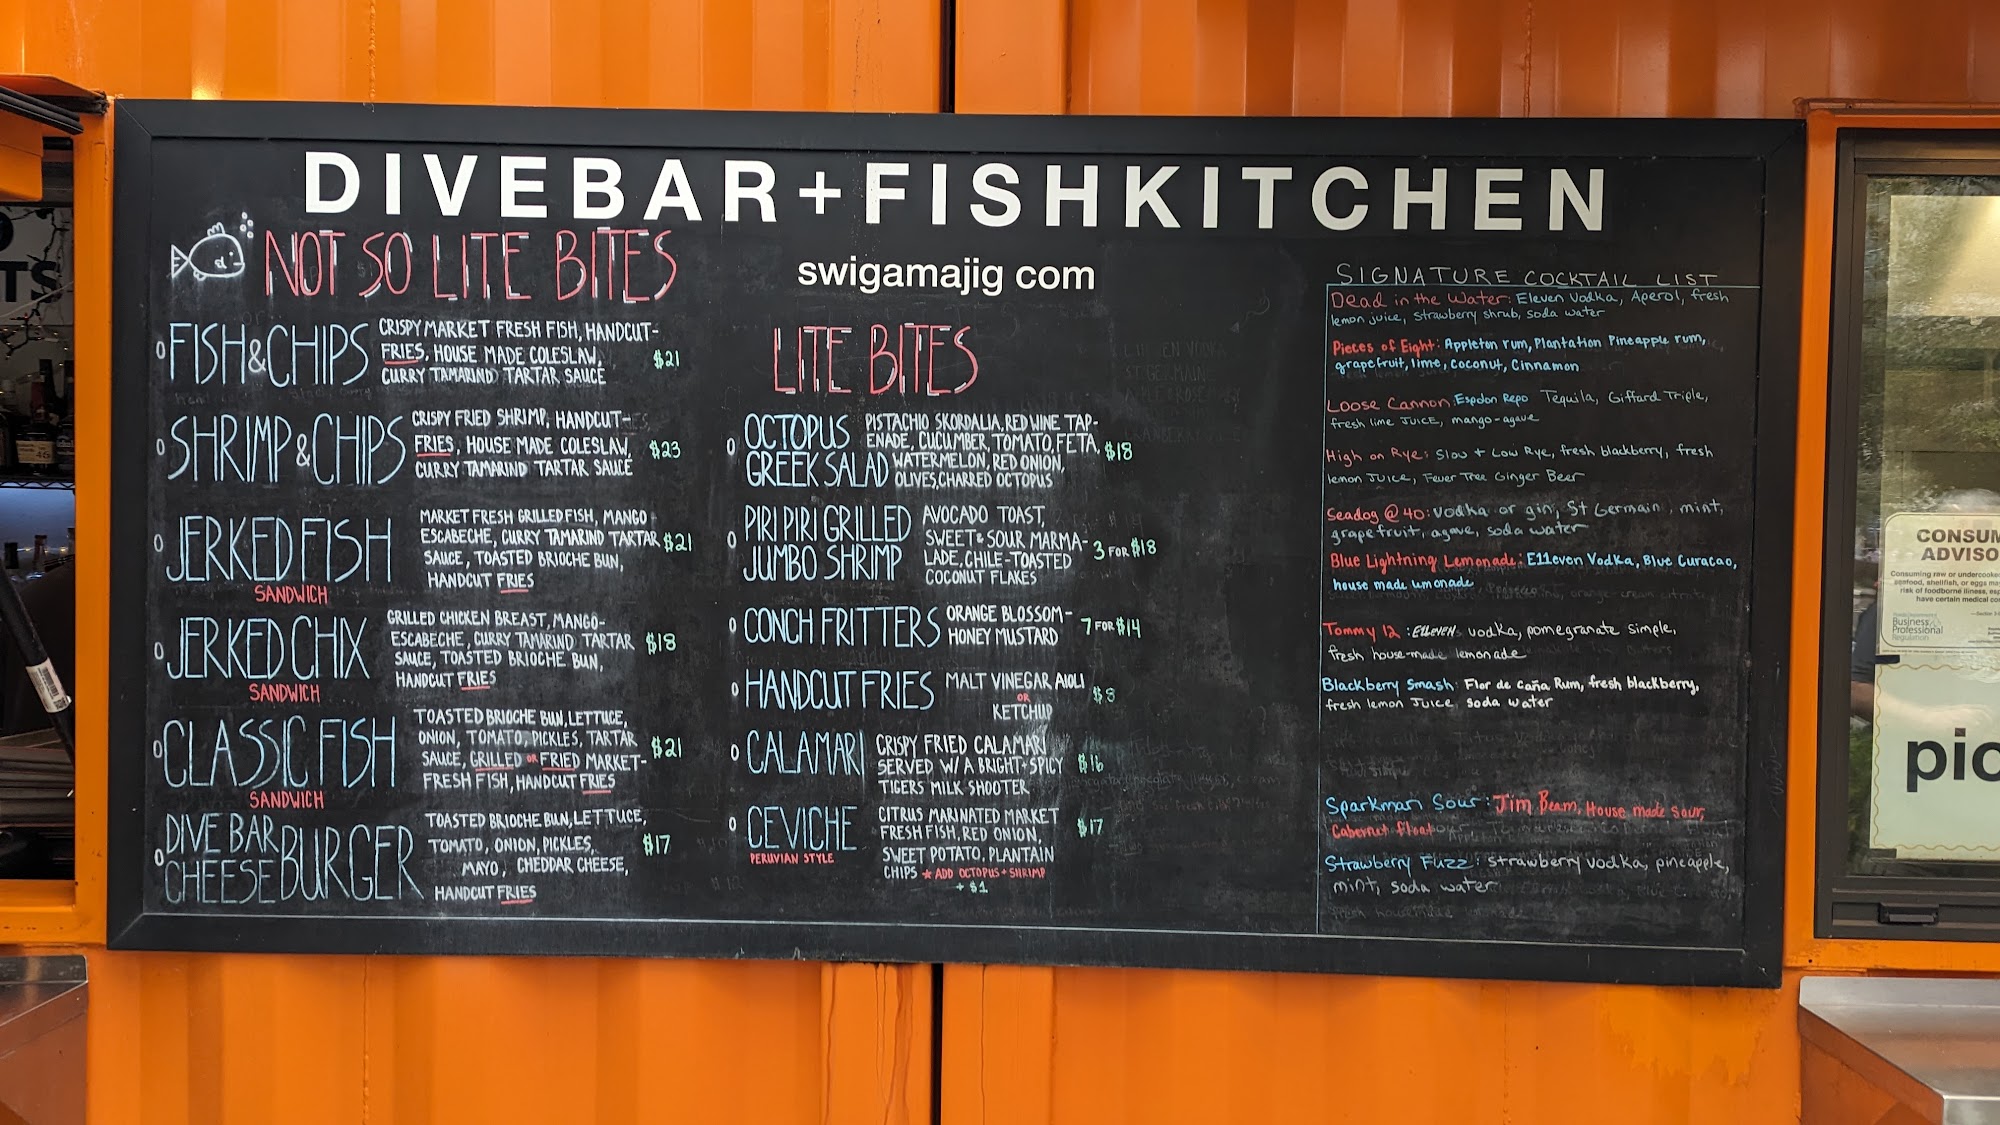 DIVEBAR+FISHKITCHEN
swigamajig com
NOT SO LITE BITES
FISH & CHIPS
CRISPY MARKET FRESH FISH, HANDCUT-
FRIES, HOUSE MADE COLESLAW,
CURRY TAMARIND TARTAR SAUCE
$21
SHRIMP & CHIPS
CRISPY FRIED SHRIMP, HANDCUT-
FRIES, HOUSE MADE COLESLAW,
CURRY TAMARIND TARTAR SAUCE
$23
JERKED FISH
SANDWICH
MARKET FRESH GRILLED FISH, MANGO
ESCABECHE, CURRY TAMARIND TARTAR
SAUCE, TOASTED BRIOCHE BUN,
HANDCUT FRIES
$21
JERKED CHIX
SANDWICH
GRILLED CHICKEN BREAST, MANGO-
ESCABECHE, CURRY TAMARIND TARTAR
SAUCE, TOASTED BRIOCHE BUN,
HANDCUT FRIES
$18
CLASSIC FISH
SANDWICH
TOASTED BRIOCHE BUN, LETTUCE,
ONION, TOMATO, PICKLES, TARTAR
SAUCE, GRILLED OR FRIED MARKET-
FRESH FISH, HANDCUT FRIES
$21
DIVE BAR
CHEESE BURGER
TOASTED BRIOCHE BUN, LETTUCE,
TOMATO, ONION, PICKLES,
MAYO, CHEDDAR CHEESE,
HANDCUT FRIES
$17
LITE BITES
OCTOPUS
GREEK SALAD
PISTACHIO SKORDALIA, RED WINE TAP-
ENADE, CUCUMBER, TOMATO, FETA,
WATERMELON, RED ONION,
OLIVES, CHARRED OCTOPUS
$18
PIRI PIRI GRILLED
JUMBO SHRIMP
AVOCADO TOAST,
SWEET & SOUR MARMA-
LADE, CHILE-TOASTED
COCONUT FLAKES
3 FOR $18
CONCH FRITTERS
ORANGE BLOSSOM-
HONEY MUSTARD
7 FOR $14
HANDCUT FRIES
MALT VINEGAR AIOLI
OR
KETCHUP
$8
CALAMARI
CRISPY FRIED CALAMARI
SERVED W/ A BRIGHT + SPICY
TIGERS MILK SHOOTER
$16
CEVICHE
PERUVIAN STYLE
CITRUS MARINATED MARKET
FRESH FISH, RED ONION,
SWEET POTATO, PLANTAIN
CHIPS ★ ADD OCTOPUS + SHRIMP
+ $1
$17
SIGNATURE COCKTAIL LIST
Dead in the Water: Eleven Vodka, Aperol, fresh
lemon juice, strawberry shrub, soda water
Pieces of Eight: Appleton rum, Plantation Pineapple rum,
grapefruit, lime, coconut, Cinnamon
Loose Cannon: Espolon Repo Tequila, Giffard Triple,
fresh lime JUICE, mango-agave
High on Rye: Slow + Low Rye, fresh blackberry, fresh
lemon JUICE, Fever Tree Ginger Beer
Seadog @ 40: vodka or gin, St Germain, mint,
grapefruit, agave, soda water
Blue Lightning Lemonade: E11even Vodka, Blue Curacao,
house made lemonade
Tommy 12: E11EVEN vodka, pomegranate simple,
fresh house-made lemonade
Blackberry Smash: Flor de Caña Rum, fresh blackberry,
fresh lemon JUICE, soda water
Sparkman Sour: Jim Beam, House made sour,
Cabernet float
Strawberry Fuzz: strawberry vodka, pineapple,
mint, soda water
CONSUM
ADVISO
Consuming raw or undercooke
seafood, shellfish, or eggs ma
risk of foodborne illness, esp
have certain medical co
Business
Professional
Regulation
pic
TS